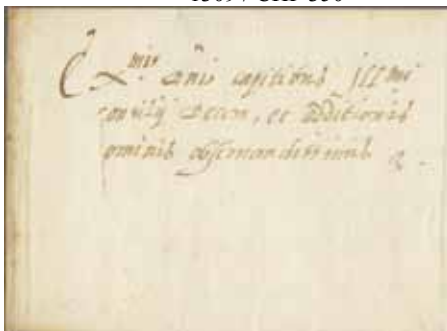 Ex.mis Dnis capitibus Ill.mi
consilij Decem, et additionis
Dominis obseruandissimis